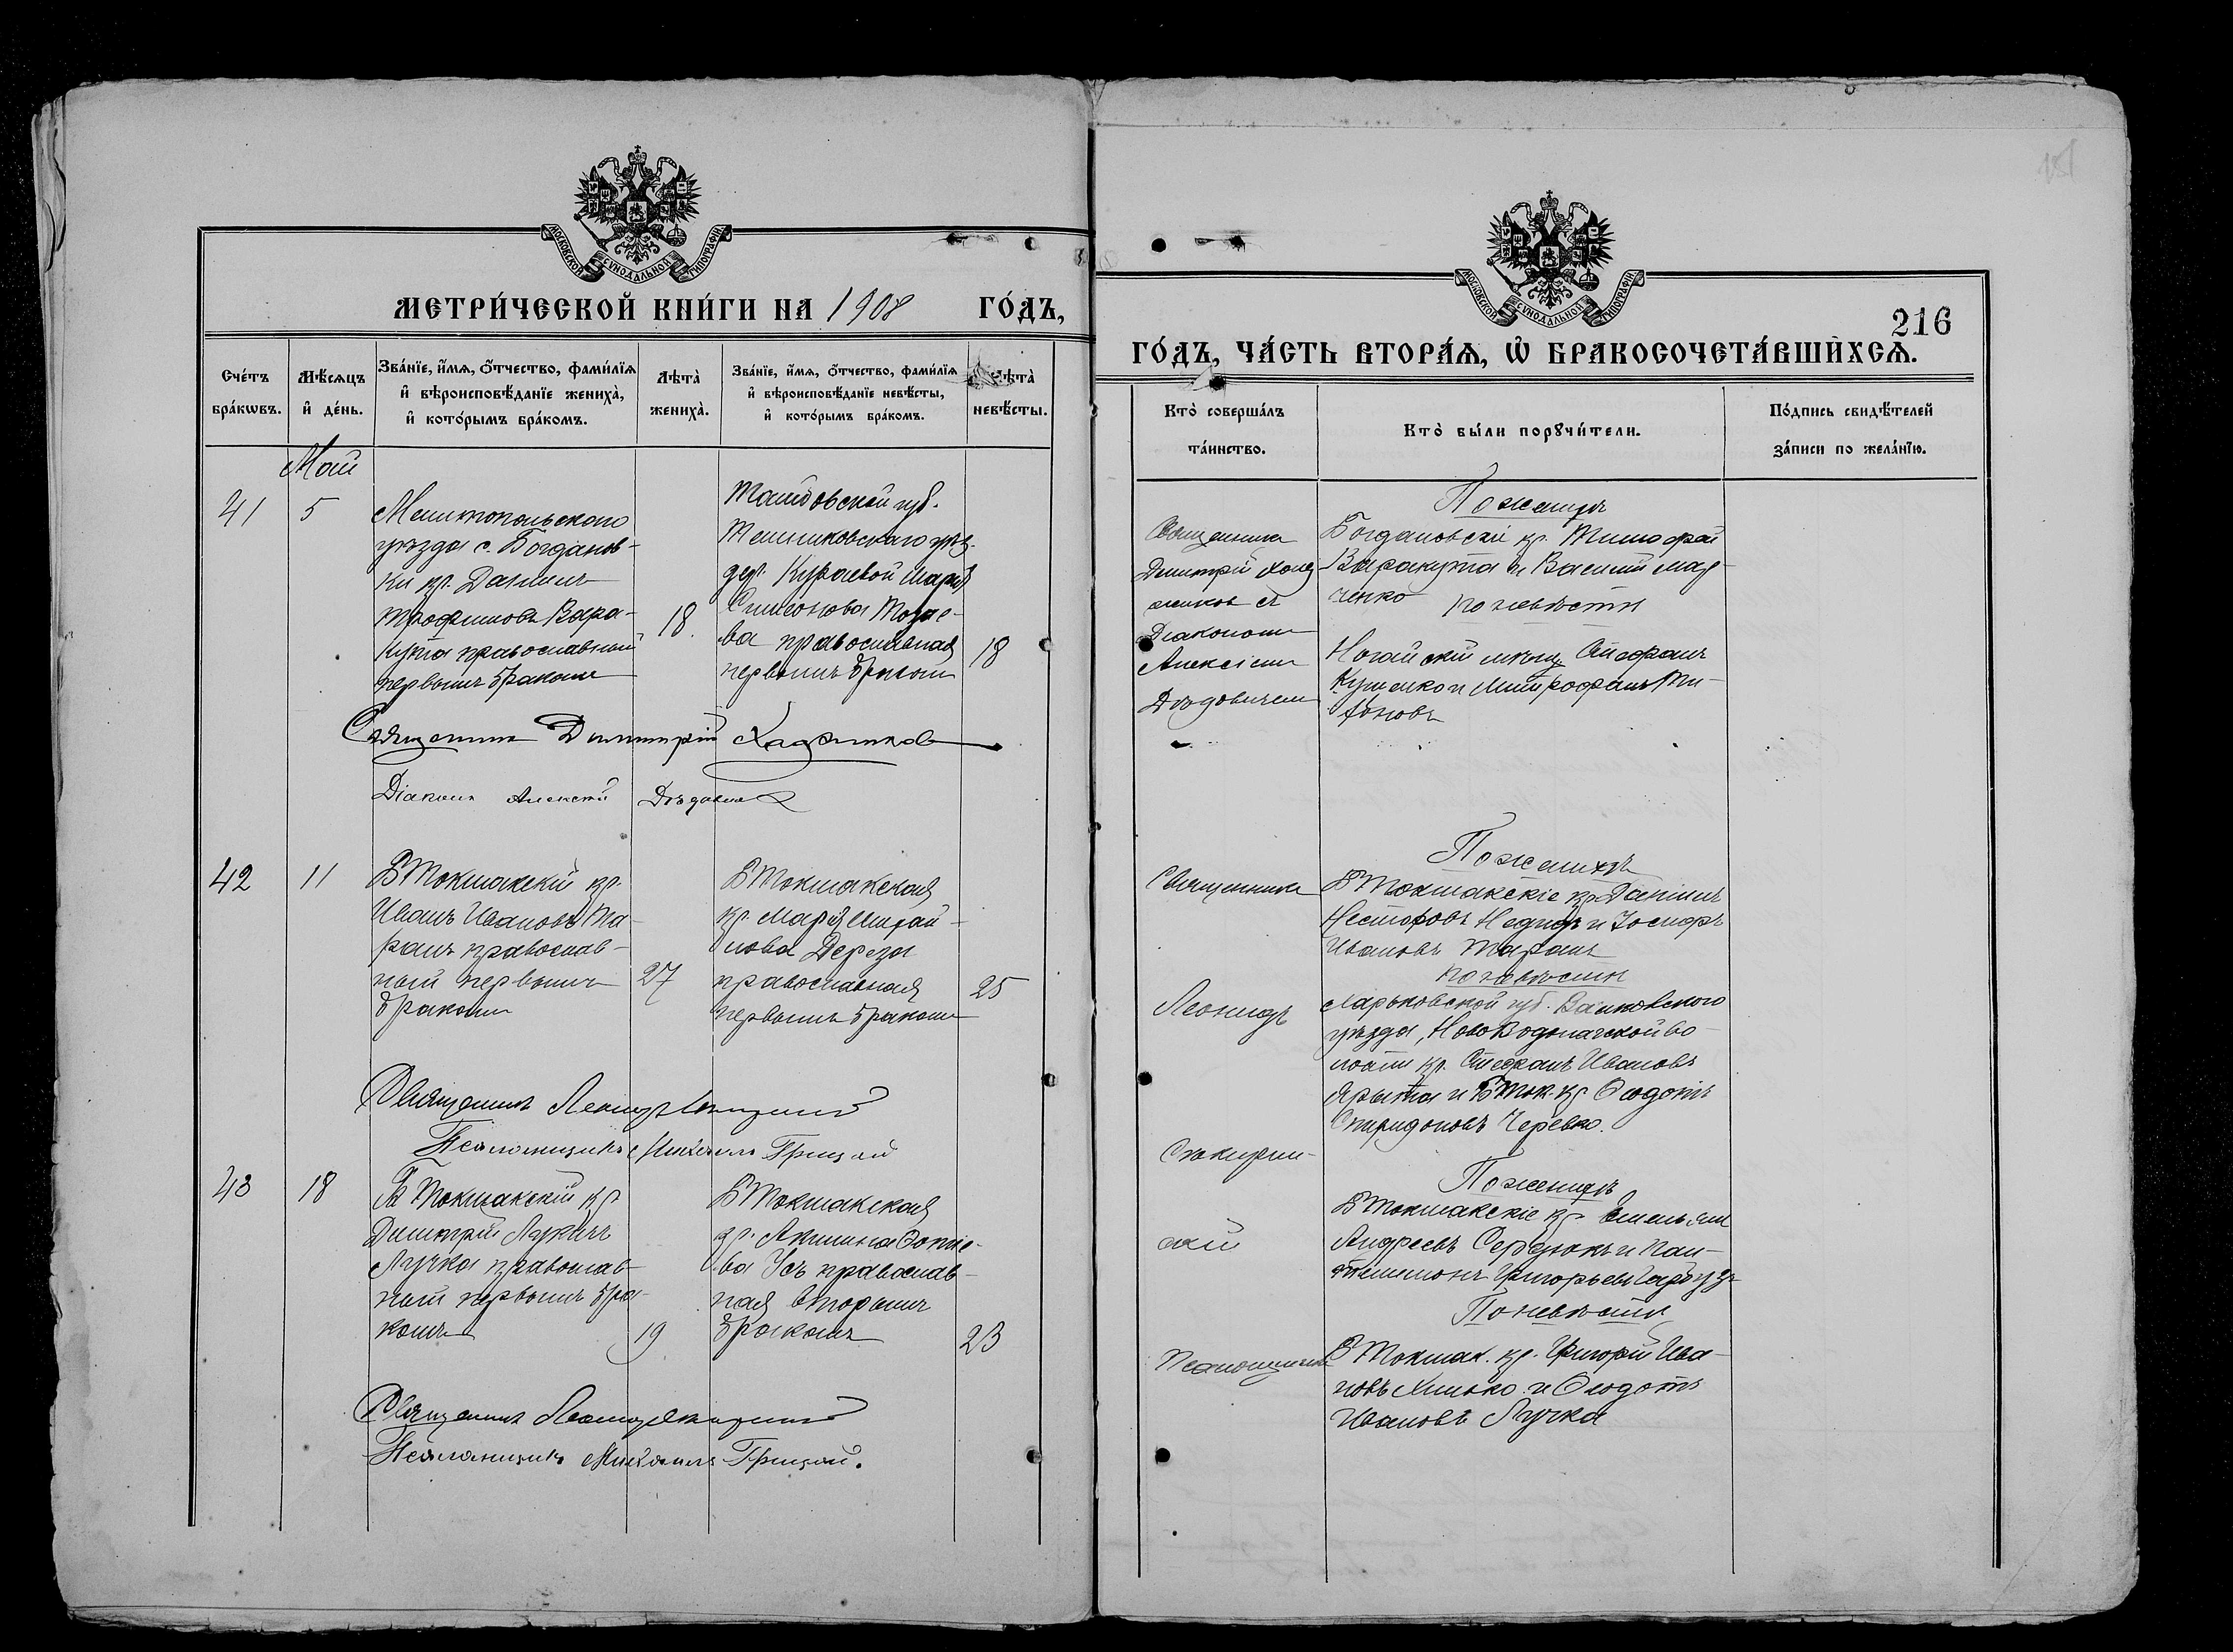 МОСКОВСКОЙ СѴНОДАЛЬНОЙ ТИПОГРАФІИ
МЕТРИ́ЧЕСКОЙ КНИ́ГИ НА 1908 ГО́ДЪ,
Сче́тъ бра́кѡвъ.
Мѣ́сѧцъ и҆ де́нь.
Зва́нїе, и҆́мѧ, ѻ҆́тчество, фами́лїѧ и҆ вѣроисповѣ́данїе жениха̀, и҆ кото́рымъ бра́комъ.
Лѣта̀ жениха̀.
Зва́нїе, и҆́мѧ, ѻ҆́тчество, фами́лїѧ и҆ вѣроисповѣ́данїе невѣ́сты, и҆ кото́рымъ бра́комъ.
Лѣта̀ невѣ́сты.
Май
41
5
Мелитопольскаго
уѣзда с. Богданов-
ки кр. Даніилъ
Трофимовъ Вара-
кута православный
первымъ бракомъ
18
Тамбовской губ.
Темниковскаго уѣз.
дер. Кураевой Марія
Симеонова
ва православная
первымъ бракомъ
18
Священникъ Димитрій
Діаконъ Алексій Дѣдович
42
11
Б Токмакскій кр.
Иванъ Ивановъ Та-
ранъ православ-
ный первымъ
бракомъ
27
Б Токмакская
кр. Марія Михай-
лова Дереза
православная
первымъ бракомъ
25
Священникъ Леонидъ
Псаломщикъ Михаилъ Грицай
43
18
Б Токмакскій кр.
Димитрій Лукинъ
Лучка православ-
ный первымъ бра-
комъ
19
Б Токмакская
кр. Акилина Фотіе-
ва Усъ православ-
ная вторымъ
бракомъ
23
Священникъ Леонидъ
Псаломщикъ Михаилъ Грицай.
МОСКОВСКОЙ СѴНОДАЛЬНОЙ ТИПОГРАФІИ
216
ГО́ДЪ, ЧА́СТЬ ВТОРА́Ѧ, Ѡ҆ БРАКОСОЧЕТА́ВШИХСѦ.
Кто̀ соверша́лъ та́инство.
Кто̀ бы́ли порꙋчи́тели.
По́дпись свидѣ́телей за́писи по жела́нїю.
Священникъ
Димитрій
съ
Діакономъ
Алексіемъ
Дѣдовичемъ
По женихѣ
Богдановскіе кр. Тимофей
Варакута и Василій Мар-
ченко
По невѣстѣ
Ногайскій мѣщ. Стефанъ
и Митрофанъ
Священникъ
Леонидъ
Скжирин-
скій
Псаломщикъ
По женихѣ
Б Токмакскіе кр. Даніилъ
Несторовъ и Іосифъ
Ивановъ Таранъ
По невѣстѣ
Харьковской губ. Валковскаго
уѣзда, Ново Водолажской во-
лости кр. Стефанъ Ивановъ
и Б Ток. кр. Ѳеодотъ
Спиридоновъ Черевко.
По женихѣ
Б Токмакскіе кр. Емельянъ
Андреевъ Середюкъ и Пан-
телеимонъ Григорьевъ
По невѣстѣ
Б Токмак. кр. Григорій Ива-
новъ Хилько и Ѳеодотъ
Ивановъ Лучка